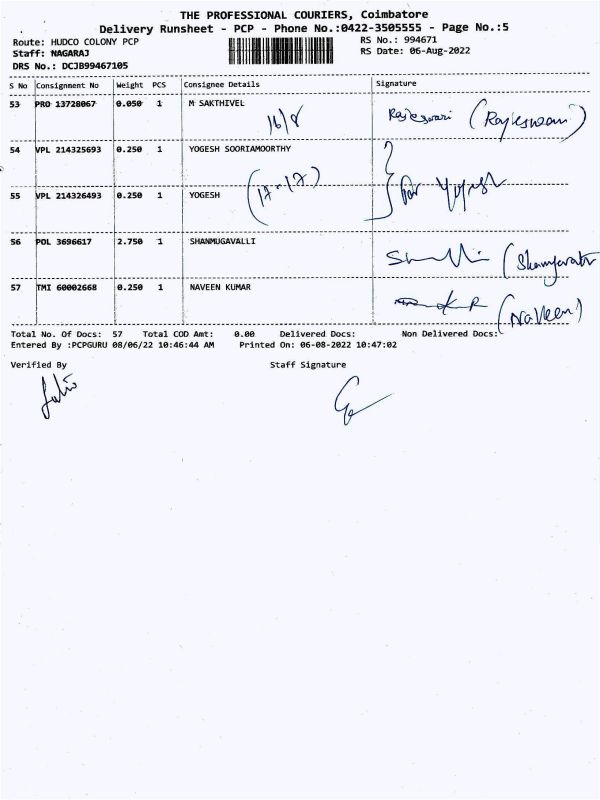 THE PROFESSIONAL COURIERS, Coimbatore
Delivery Runsheet - PCP - Phone No.:0422-3505555 - Page No.:5
Route: HUDCO COLONY PCP
RS No.: 994671
Staff: NAGARAJ
RS Date: 06-Aug-2022
DRS No.: DCJB99467105
S No Consignment No Weight PCS Consignee Details Signature
53 PRO 13728067 0.050 1 M SAKTHIVEL
16/8 Rajeswari (Rajeswari)
54 VPL 214325693 0.250 1 YOGESH SOORIAMOORTHY
(17-17) for Yogesh
55 VPL 214326493 0.250 1 YOGESH
56 POL 3696617 2.750 1 SHANMUGAVALLI
57 TMI 60002668 0.250 1 NAVEEN KUMAR
(Naveen)
Total No. Of Docs: 57 Total COD Amt: 0.00 Delivered Docs: Non Delivered Docs:
Entered By :PCPGURU 08/06/22 10:46:44 AM Printed On: 06-08-2022 10:47:02
Verified By Staff Signature